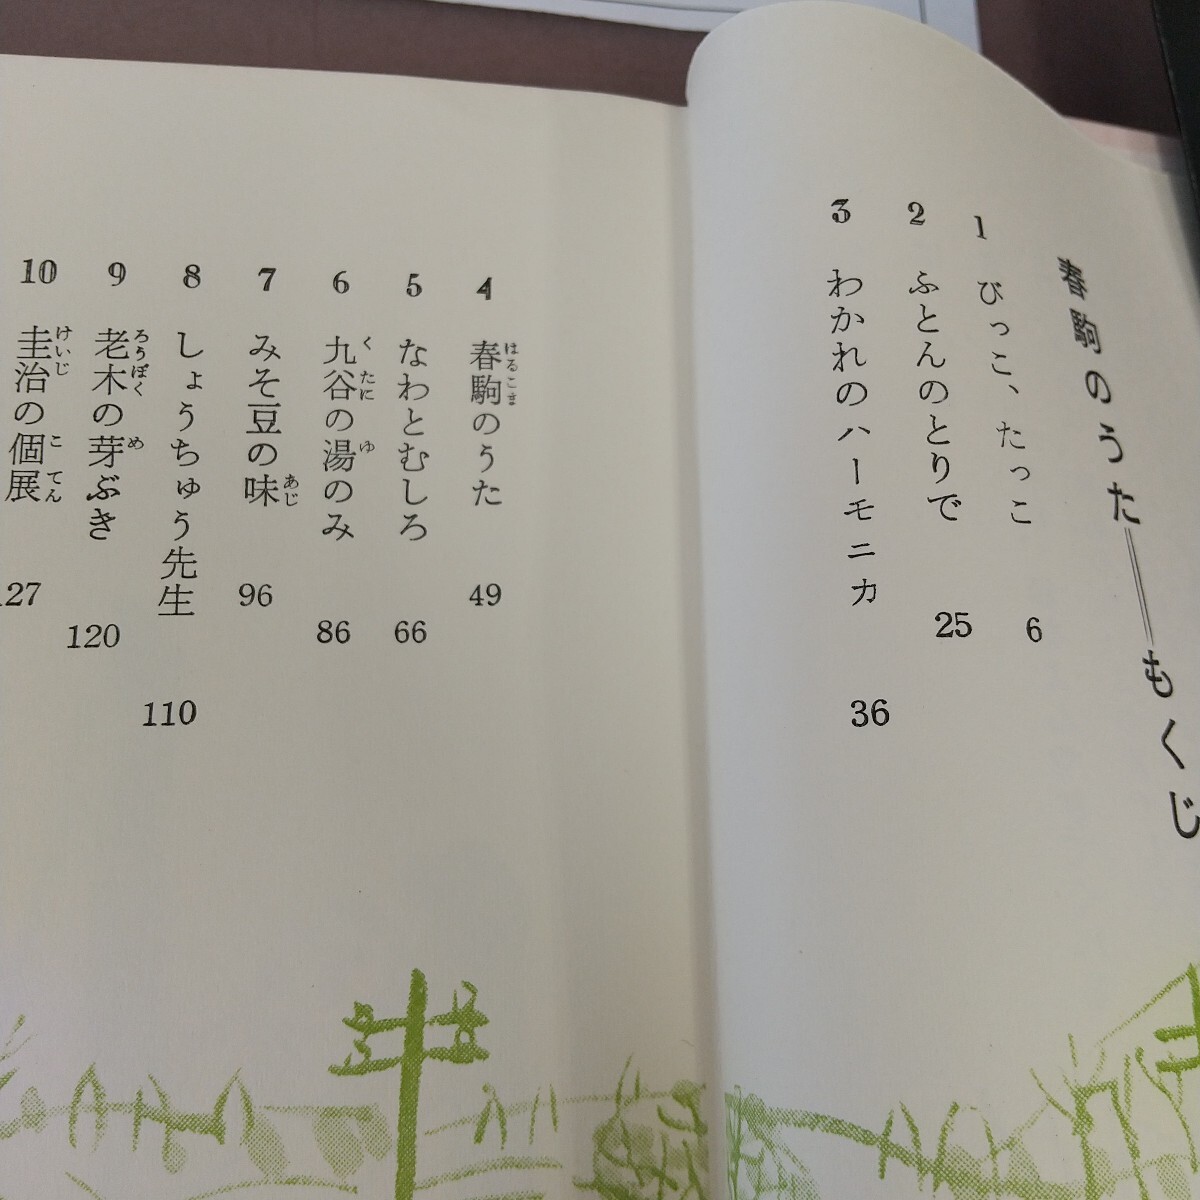 春駒のうた――もくじ
1 びっこ、たっこ 6
2 ふとんのとりで 25
3 わかれのハーモニカ 36
4 春駒のうた 49
はるこま
5 なわとむしろ 66
6 九谷の湯のみ 86
くたに ゆ
7 みそ豆の味 96
あじ
8 しょうちゅう先生 110
9 老木の芽ぶき 120
ろうぼく め
10 圭治の個展 127
けいじ こてん